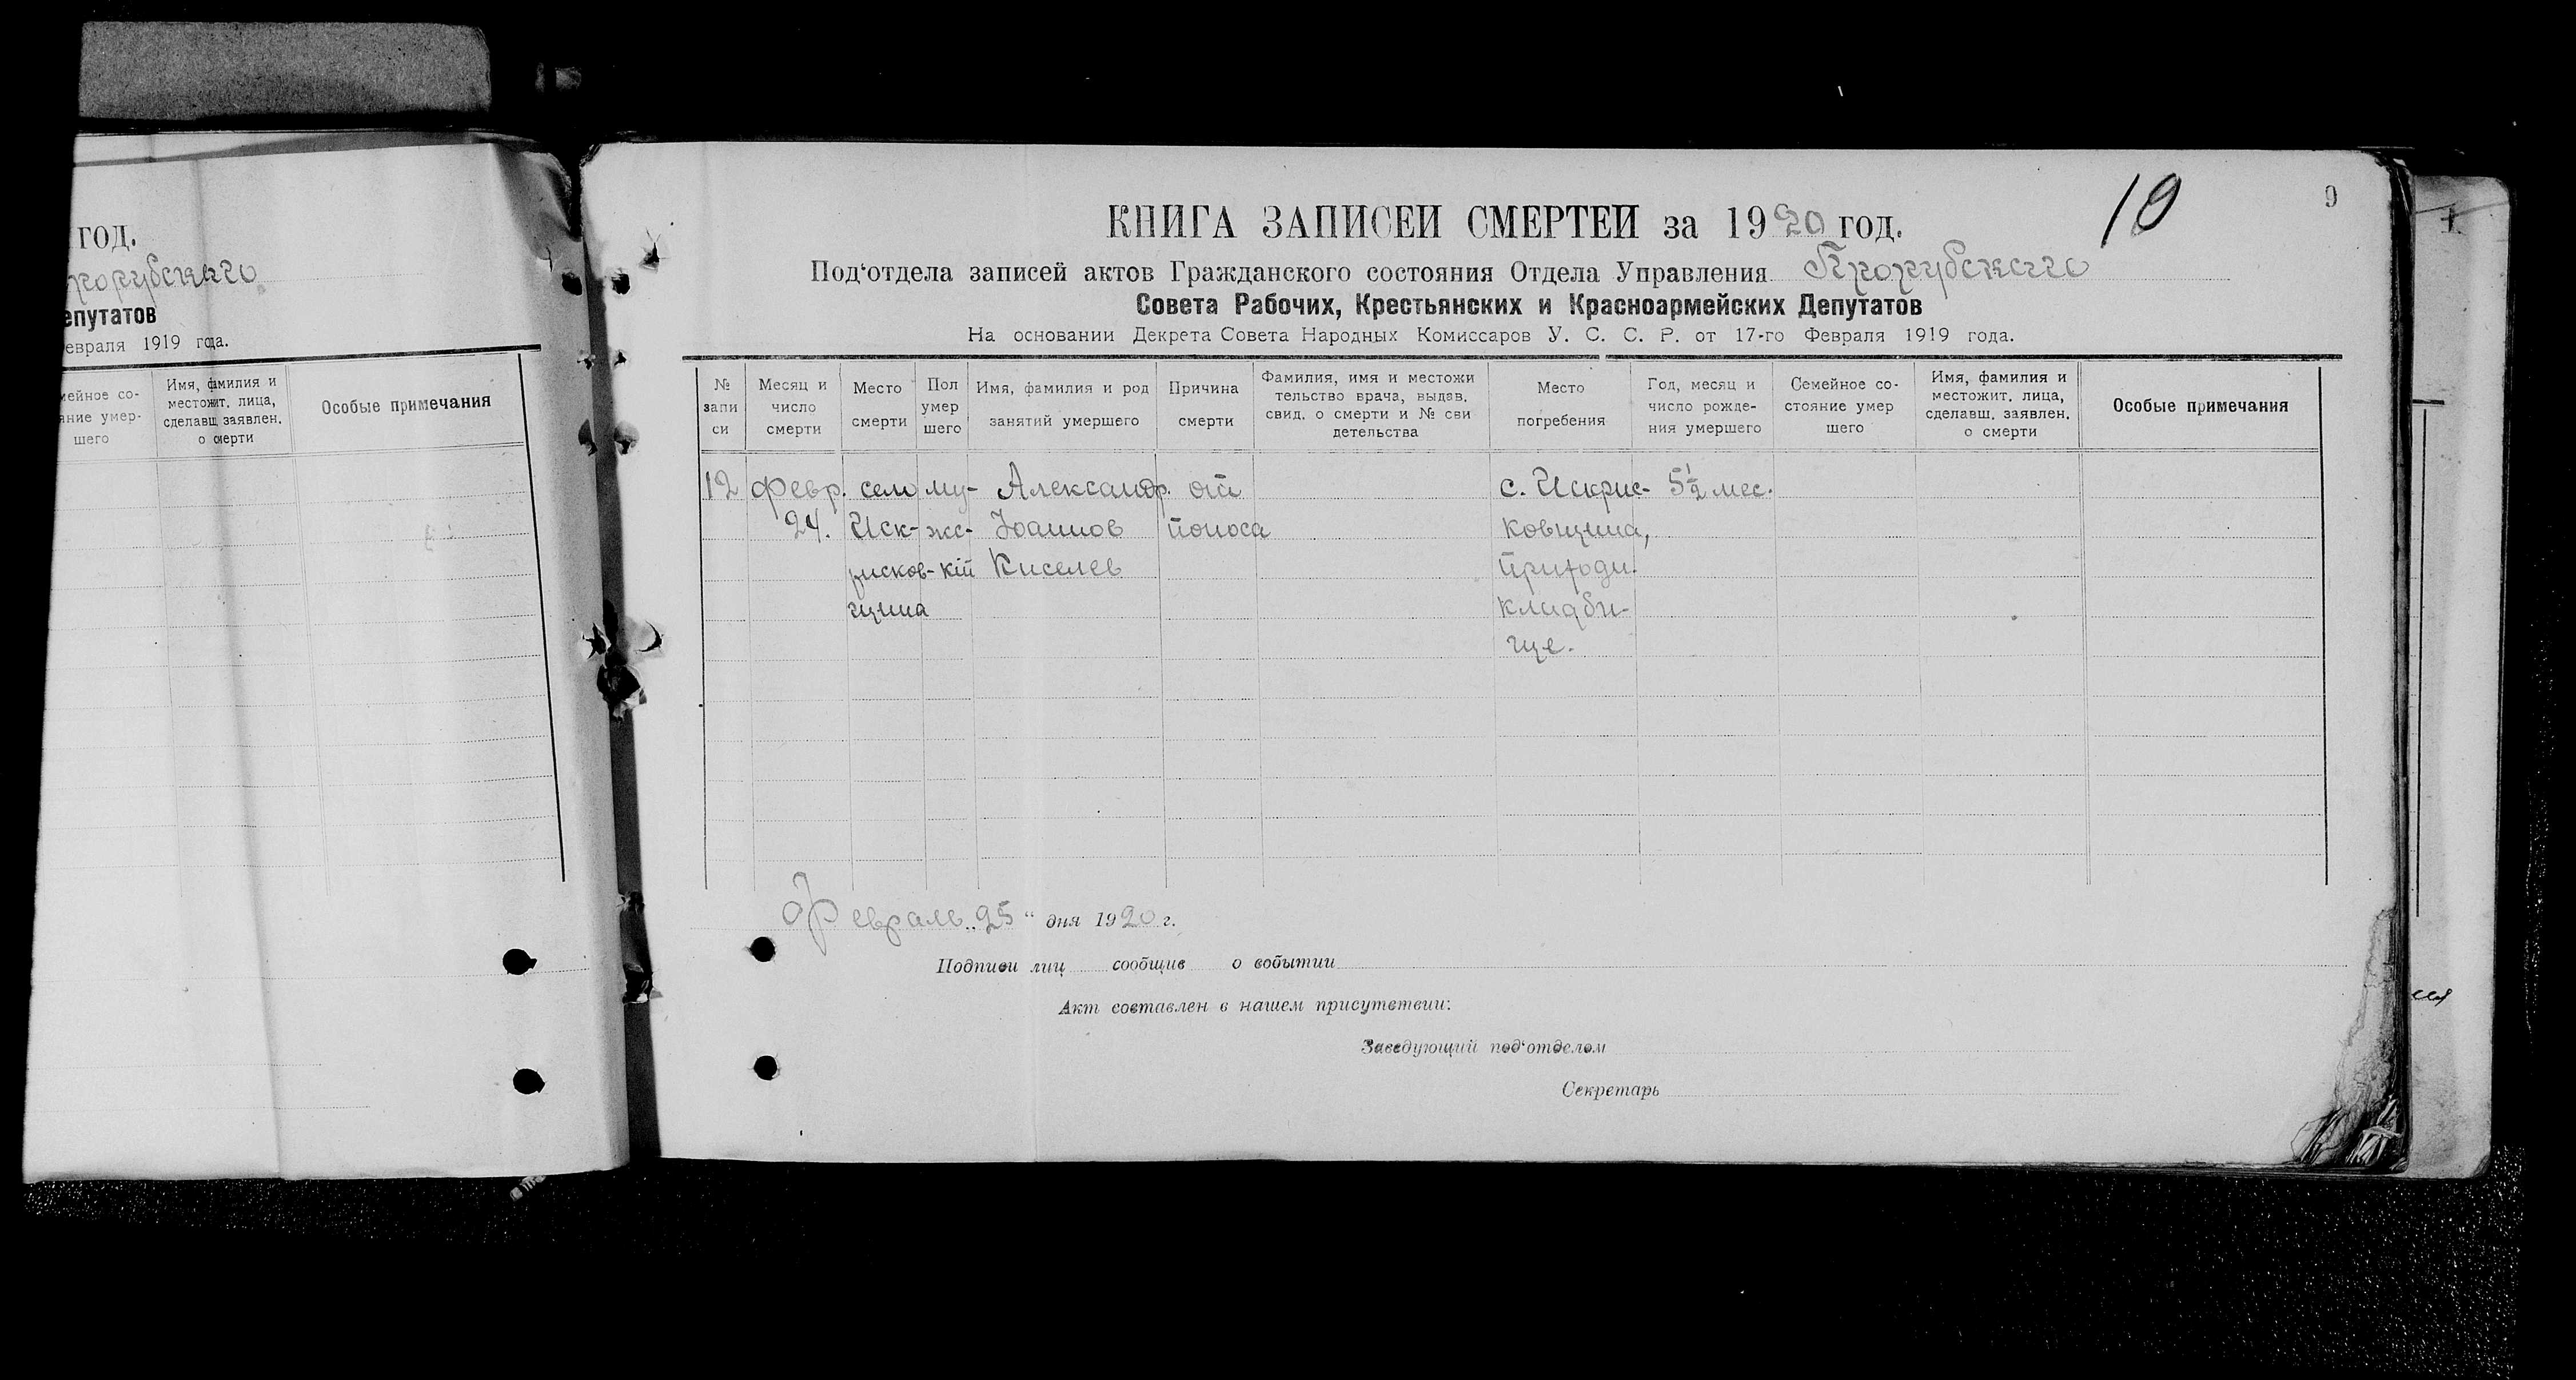 год.
епутатов
евраля 1919 года.
мейное со-
яние умер-
шего
Имя, фамилия и
местожит. лица,
сделавш. заявлен.
о смерти
Особые примечания
КНИГА ЗАПИСЕЙ СМЕРТЕЙ за 1920 год.
10
9
Под‘отдела записей актов Гражданского состояния Отдела Управления
Совета Рабочих, Крестьянских и Красноармейских Депутатов
На основании Декрета Совета Народных Комиссаров У. С. С. Р. от 17-го Февраля 1919 года.
№
запи
си
Месяц и
число
смерти
Место
смерти
Пол
умер
шего
Имя, фамилия и род
занятий умершего
Причина
смерти
Фамилия, имя и местожи
тельство врача, выдав.
свид. о смерти и № сви
детельства
Место
погребения
Год, месяц и
число рожде-
ния умершего
Семейное со-
стояние умер
шего
Имя, фамилия и
местожит. лица,
сделавш. заявлен.
о смерти
Особые примечания
12
Февр.
24.
село
Иск-
рисков-
щина
му-
жс-
кій
Александр.
Иоаннов
Киселев
от
поноса
с. Искрис-
ковщина,
приход.
кладби-
ще.
5½ мес.
Февраль „25“ дня 1920 г.
Подписи лиц сообщив о событии
Акт составлен в нашем присутствии:
Заведующий под‘отделом
Секретарь